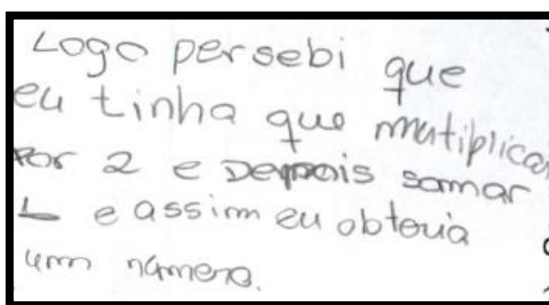 Logo persebi que
eu tinha que mutiplicar
por 2 e Depois somar
1 e assim eu obteria
um número.